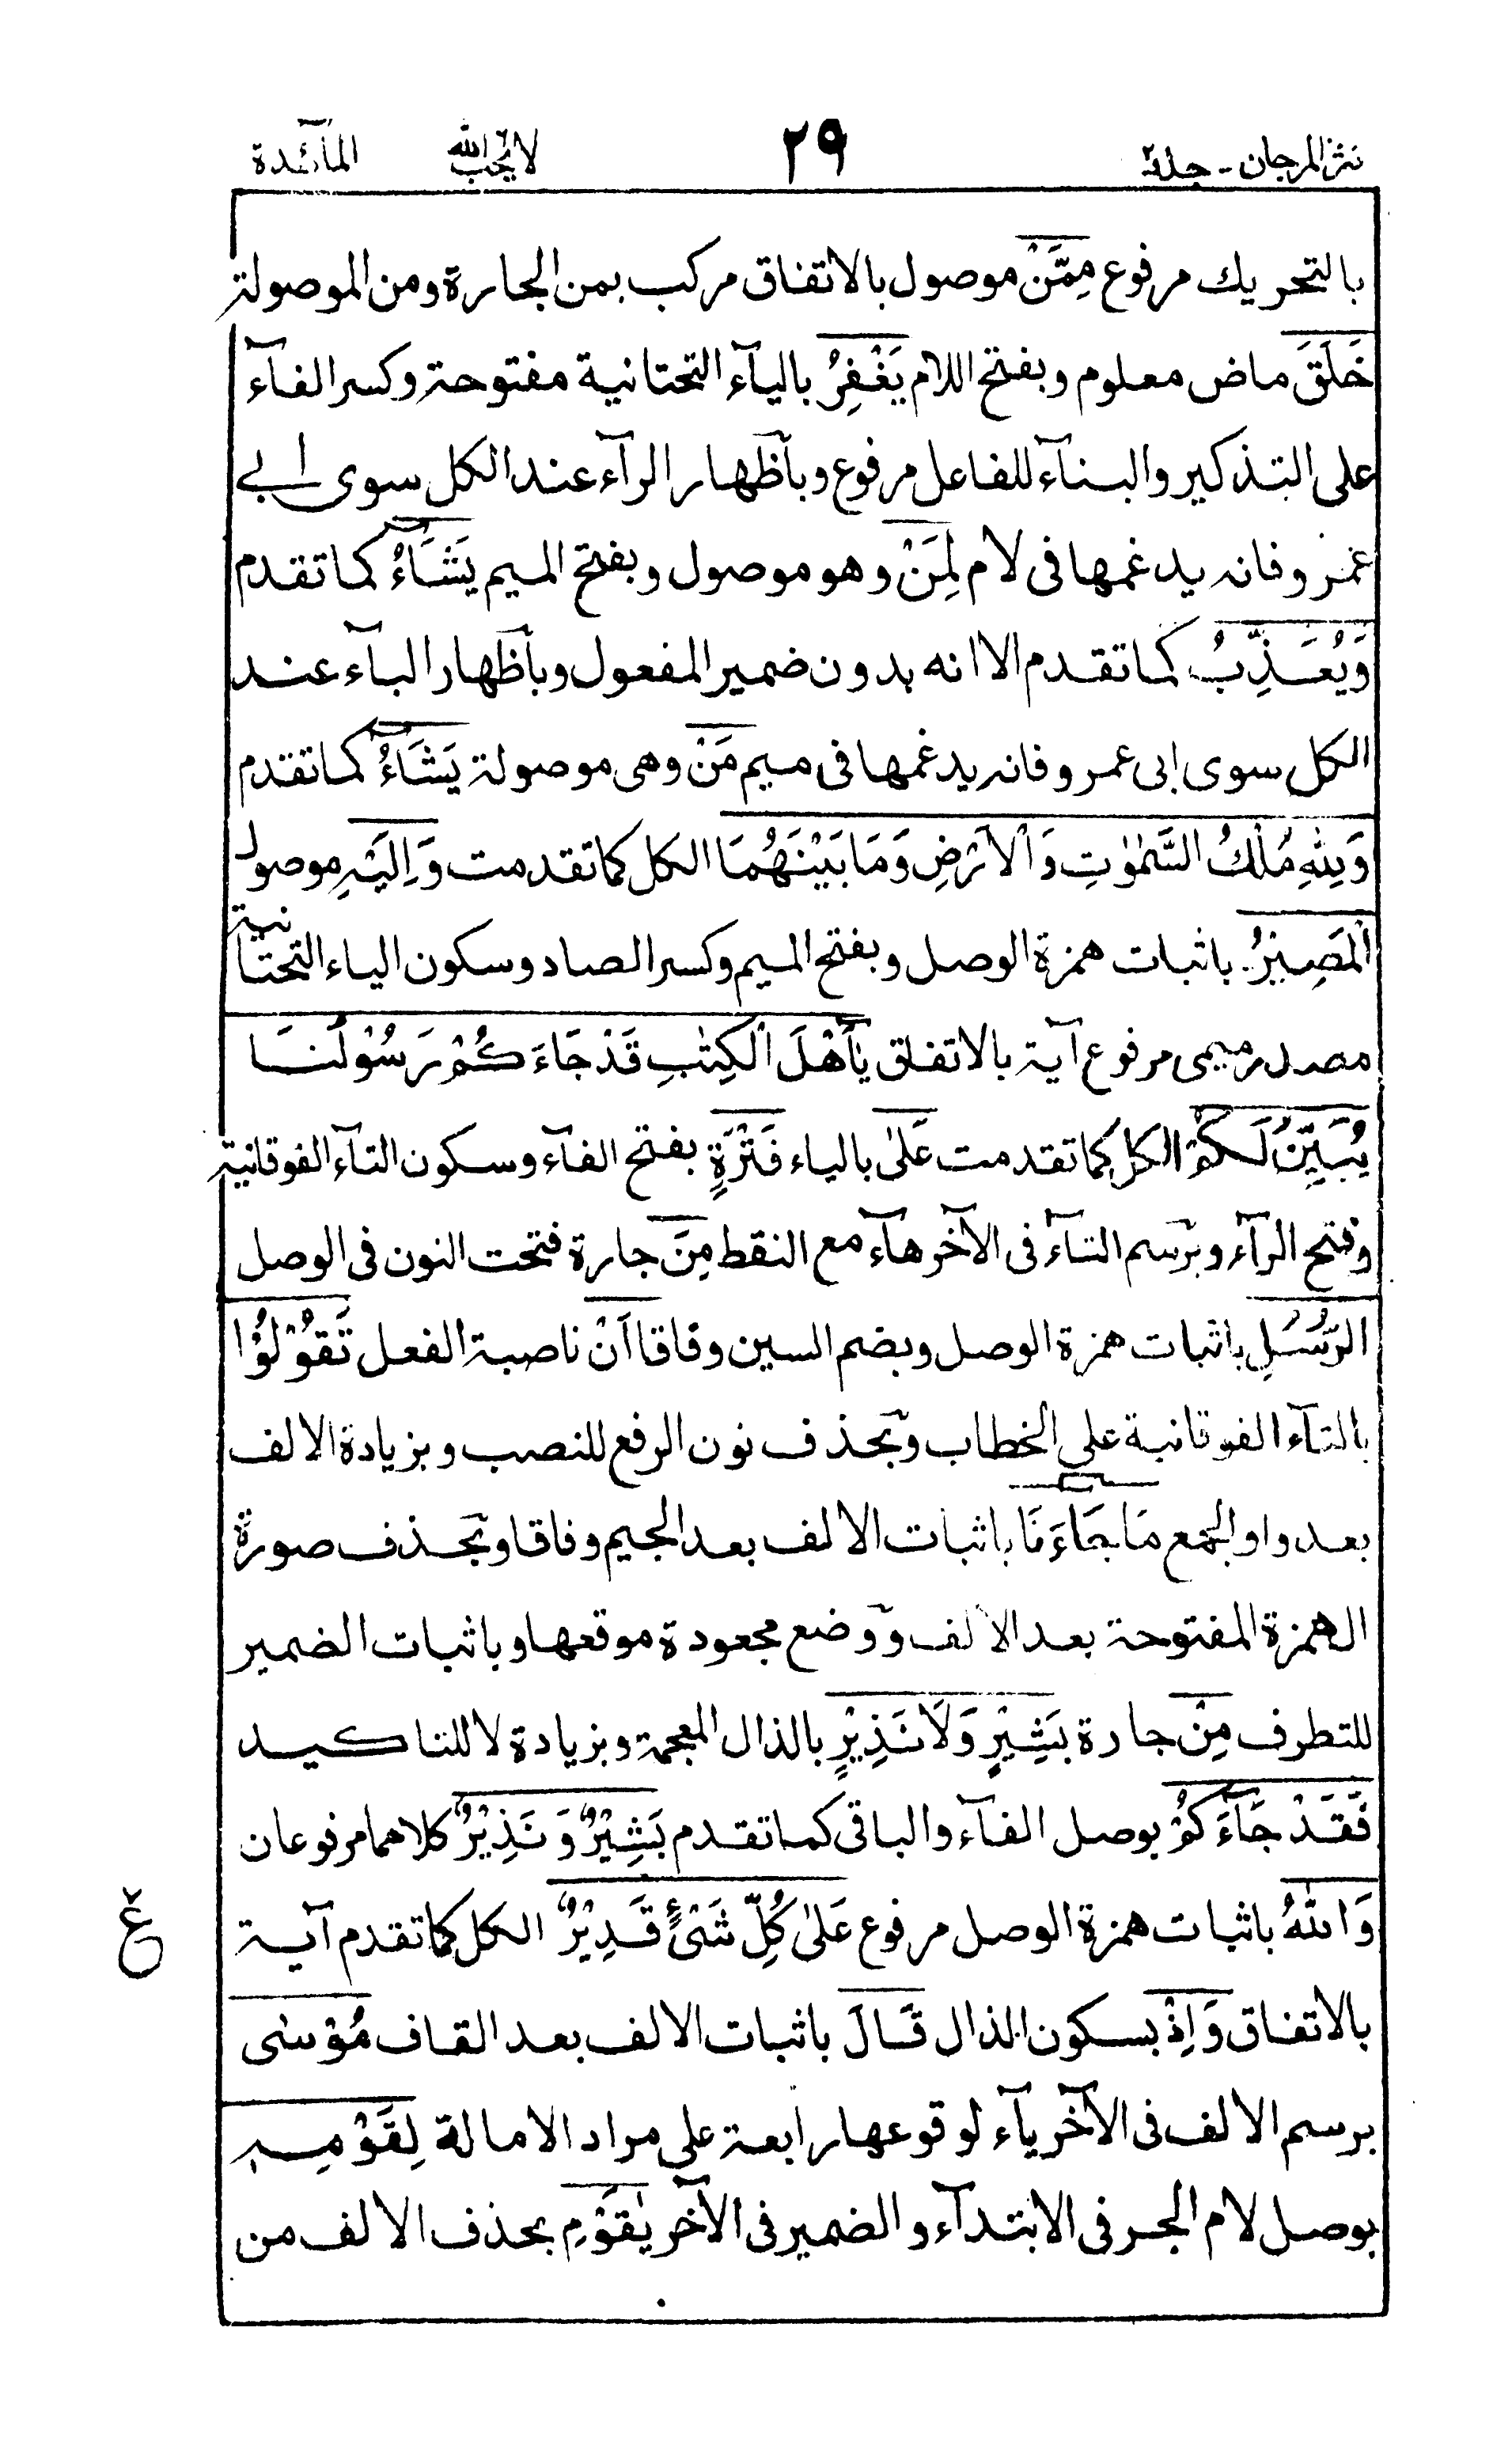 نثر المرجان - جلد٢ ٢٩ لا يحب الله المآئدة
بالتحريك مرفوع مِمَّنْ موصول بالاتفاق مركب بمن الجارة ومن الموصولة
خَلَقَ ماض معلوم وبفتح اللام يَغْفِرُ باليآء التحتانية مفتوحة وكسر الفآء
على التذكير والبنآء للفاعل مرفوع وبأظهار الرآء عند الكل سوى ابي
عمرو فانه يدغمها فى لام لِمَنْ وهو موصول وبفتح الميم يَشَآءُ كما تقدم
وَيُعَذِّبُ كما تقدم الا انه بدون ضمير المفعول وبأظهار البآء عند
الكل سوى ابى عمرو فانه يدغمها فى ميم مَنْ وهى موصولة يَشَآءُ كما تقدم
وَلِلّٰهِ مُلْكُ السَّمٰوٰتِ وَالْاَرْضِ وَمَا بَيْنَهُمَا الكل كما تقدمت وَاِلَيْهِ موصول
الْمَصِيْرُ باثبات همزة الوصل وبفتح الميم وكسر الصاد وسكون الياء التحتانية
مصدر ميمى مرفوع آية بالاتفاق يٰٓاَهْلَ الْكِتٰبِ قَدْ جَاءَكُمْ رَسُوْلُنَا
يُبَيِّنُ لَكُمْ الكل كما تقدمت عَلٰى بالياء فَتْرَةٍ بفتح الفآء وسكون التآء الفوقانية
وفتح الرآء وبرسم التآء فى الآخر هآء مع النقط مِنَ جارة فتحت النون فى الوصل
الرُّسُلِ باثبات همزة الوصل وبضم السين وفاقا اَنْ ناصبة الفعل تَقُوْلُوْا
بالتآء الفوقانية على الخطاب وبحذف نون الرفع للنصب وبزيادة الالف
بعد واو الجمع مَا جَاءَنَا باثبات الالف بعد الجيم وفاقا وبحذف صورة
الهمزة المفتوحة بعد الالف ووضع مجعودة موقعها وباثبات الضمير
للتطرف مِنْ جارة بَشِيْرٍ وَلَا نَذِيْرٍ بالذال المعجمة وبزيادة لا للتاكيد
فَقَدْ جَآءَكُمْ بوصل الفآء والباقى كما تقدم بَشِيْرٌ وَنَذِيْرٌ كلاهما مرفوعان
وَاللّٰهُ باثبات همزة الوصل مرفوع عَلٰى كُلِّ شَىْءٍ قَدِيْرٌ الكل كما تقدم آية
ع
بالاتفاق وَاِذْ بسكون الذال قَالَ باثبات الالف بعد القاف مُوْسٰى
برسم الالف فى الآخر يآء لوقوعها رابعة على مراد الامالة لِقَوْمِهٖ
بوصل لام الجر فى الابتدآء والضمير فى الآخر يٰقَوْمِ بحذف الالف من